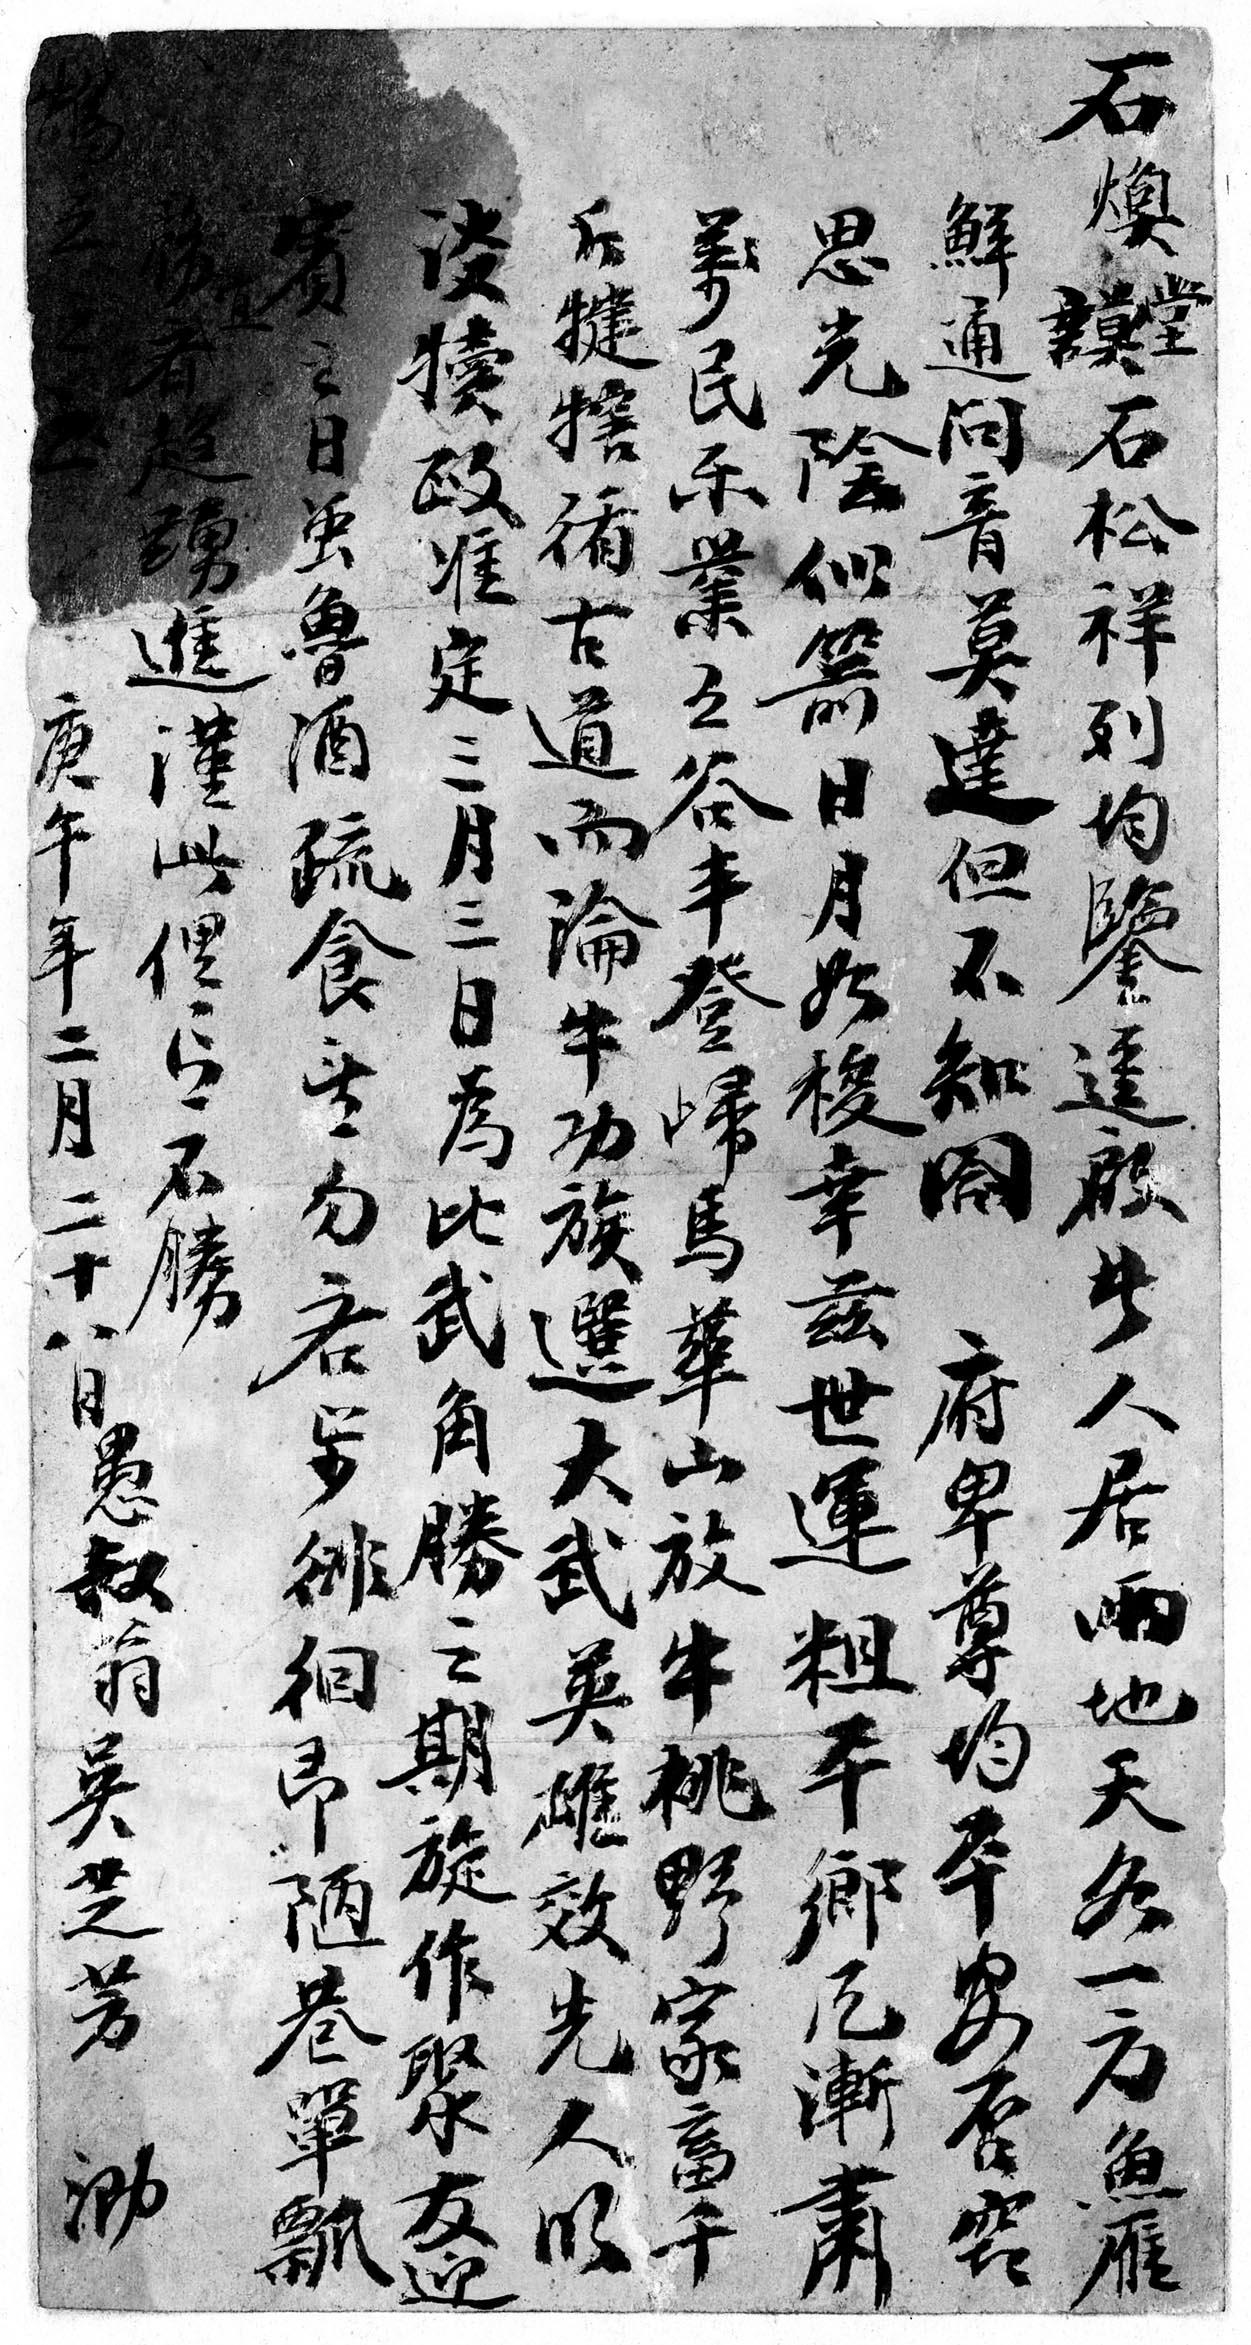 石煥堂謨石松祥列均鑒逕啟者人居兩地天各一方魚雁
鮮通問音莫達但不知閤府卑尊均平安否窃
思光陰似箭日月如梭幸茲世運粗平鄉匞漸肅
萬民樂業五谷丰登歸馬華山放牛桃野家畜千
斤犍犗循古道而論牛功族選大武英雄效先人以
設犢政准定三月三日為比武角勝之期旋作聚友迎
賓之日虽魯酒疏食幸勿吝步徘徊即陋巷單瓢
務宜者趨踴進謹此俚言不勝
禱之之至
庚午年二月二十八日愚叔翁吳芝芳泐